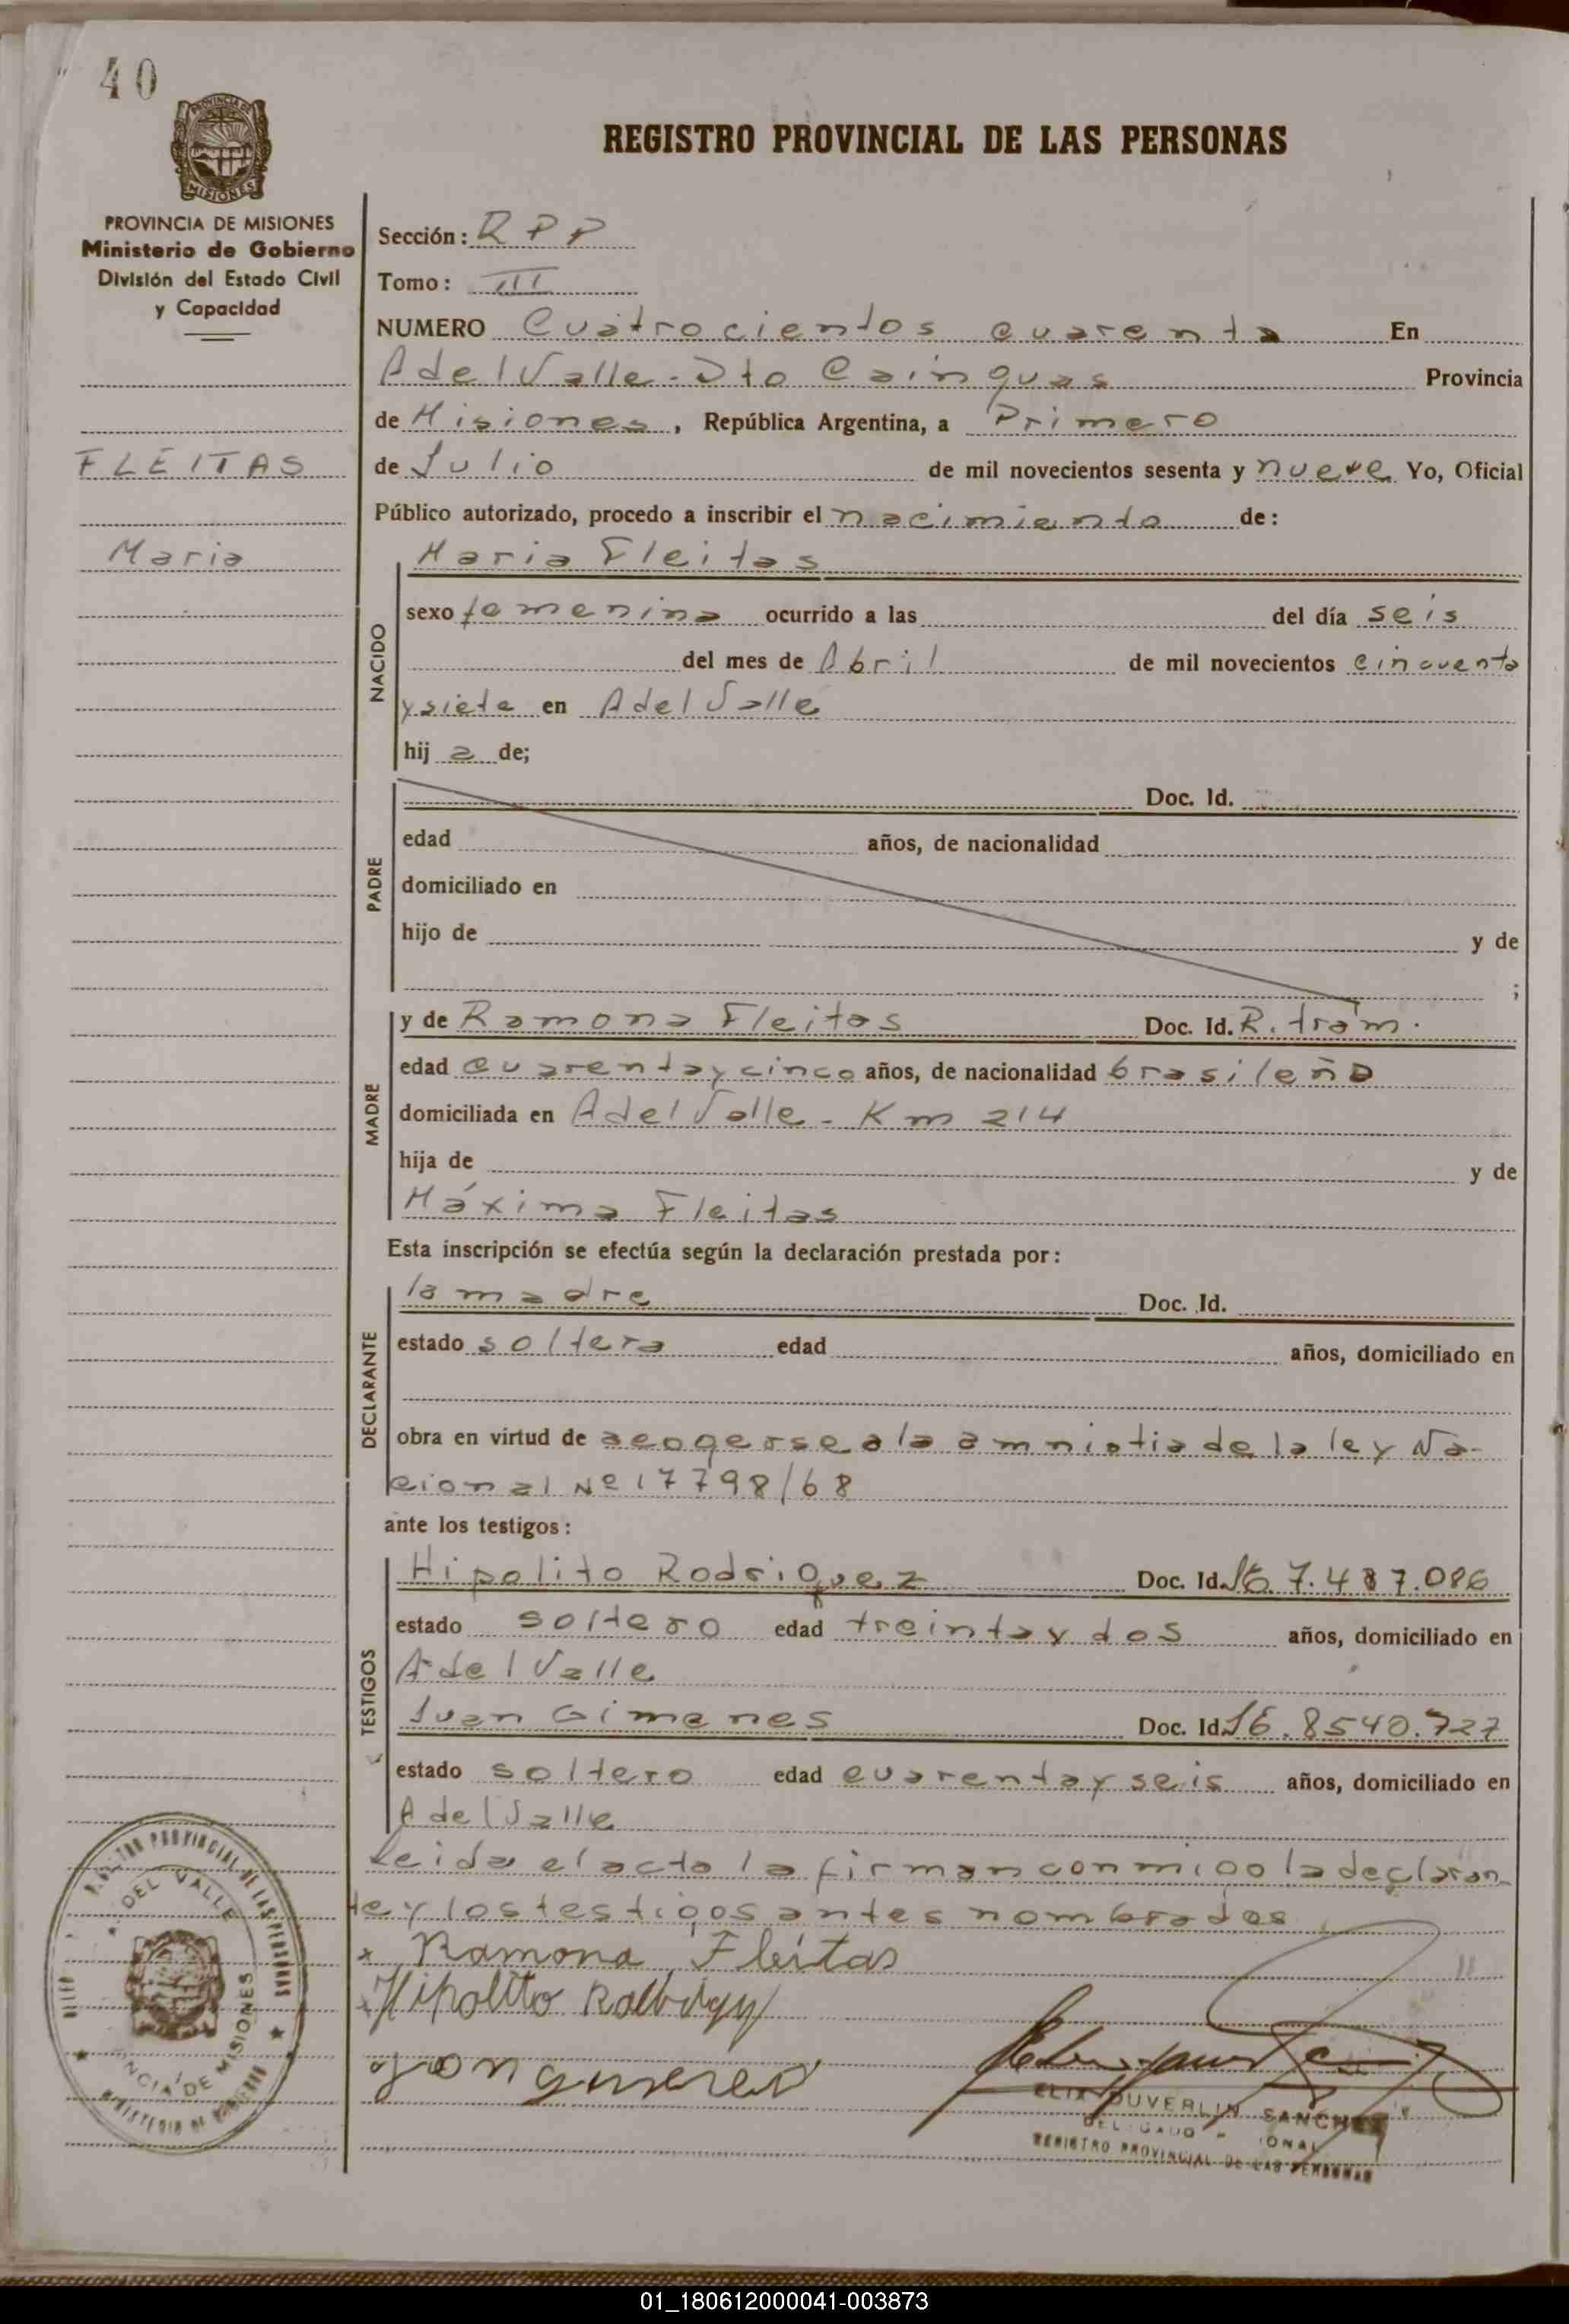 40
PROVINCIA DE
MISIONES
REGISTRO PROVINCIAL DE LAS PERSONAS
PROVINCIA DE MISIONES
Ministerio de Gobierno
División del Estado Civil
y Capacidad
FLEITAS
Maria
Sección: RPP
Tomo: III
NUMERO Cuatrocientos cuarenta En
A del Valle - Dto Cainguas Provincia
de Misiones, República Argentina, a Primero
de Julio de mil novecientos sesenta y nueve Yo, Oficial
Público autorizado, procedo a inscribir el nacimiento de:
NACIDO
Maria Fleitas
sexo femenina ocurrido a las del día seis
del mes de Abril de mil novecientos cincuenta
y siete en A del Valle
hij a de;
PADRE
Doc. Id.
edad años, de nacionalidad
domiciliado en
hijo de y de
;
MADRE
y de Ramona Fleitas Doc. Id. R. trám.
edad cuarenta y cinco años, de nacionalidad brasileña
domiciliada en A del Valle - Km 214
hija de y de
Máxima Fleitas
Esta inscripción se efectúa según la declaración prestada por:
DECLARANTE
la madre Doc. Id.
estado soltera edad años, domiciliado en
obra en virtud de acogerse a la amnistia de la ley Na-
cional Nº 17798/68
ante los testigos:
TESTIGOS
Hipolito Rodriguez Doc. Id. 7.487.086
estado soltero edad treinta y dos años, domiciliado en
A del Valle
Juan Gimenes Doc. Id. 8540.727
estado soltero edad cuarenta y seis años, domiciliado en
A del Valle
Leida el acta la firman conmigo la declaran-
te y los testigos antes nombrados
x Ramona Fleitas
x Hipolito
REGISTRO PROVINCIAL DE LAS PERSONAS
DEL VALLE
DE MISIONES
DUVERLIN SANCHEZ
REGISTRO PROVINCIAL DE LAS PERSONAS
01_180612000041-003873